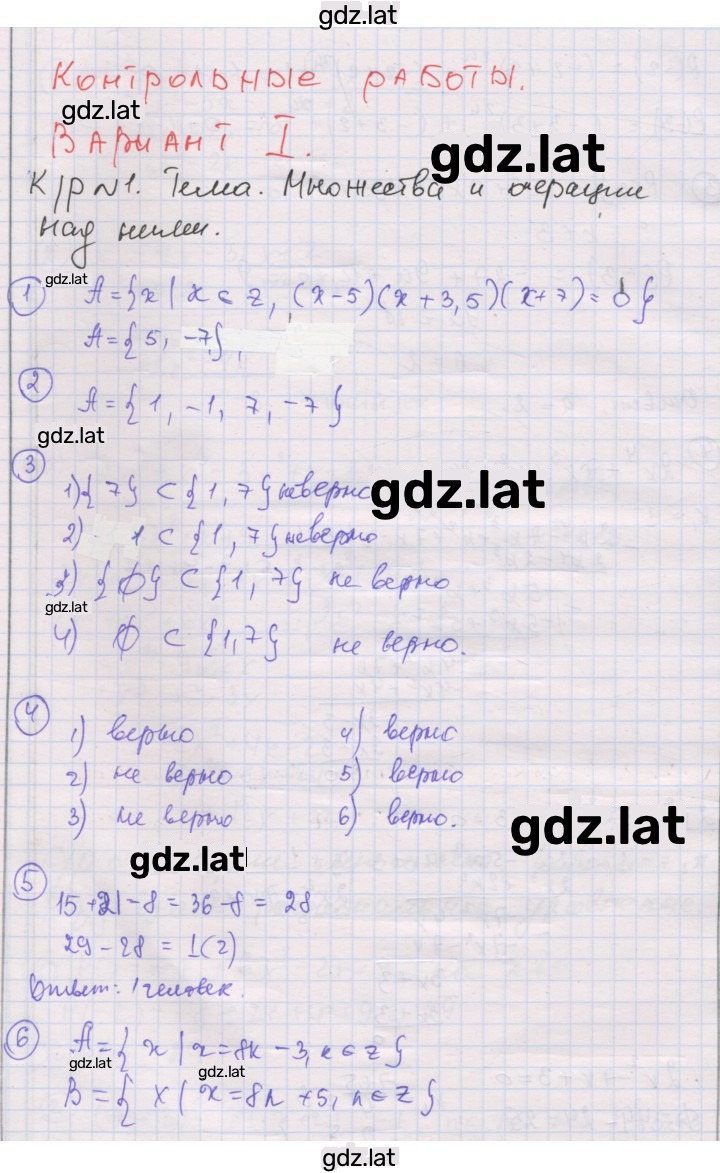 gdz.lat
Контрольные работы.
gdz.lat
Вариант I.
gdz.lat
К/р №1. Тема. Множества и операции
над ними.
gdz.lat
1 A = {x | x ∈ z, (x-5)(x+3,5)(x+7) = 0}
A = {5, -7}
2 A = {1, -1, 7, -7}
gdz.lat
3
1) {7} ⊂ {1, 7} неверно
gdz.lat
2) 1 ⊂ {1, 7} неверно
3) {∅} ⊂ {1, 7} не верно
gdz.lat
4) ∅ ⊂ {1,7} не верно.
4 1) верно 4) верно
2) не верно 5) верно
3) не верно 6) верно.
gdz.lat
gdz.lat
5
15 + 21 - 8 = 36 - 8 = 28
29 - 28 = 1(2)
Ответ: 1 человек.
6 A = {x | x = 8k - 3, k ∈ z}
gdz.lat
gdz.lat
B = {x | x = 8n + 5, n ∈ z}
gdz.lat